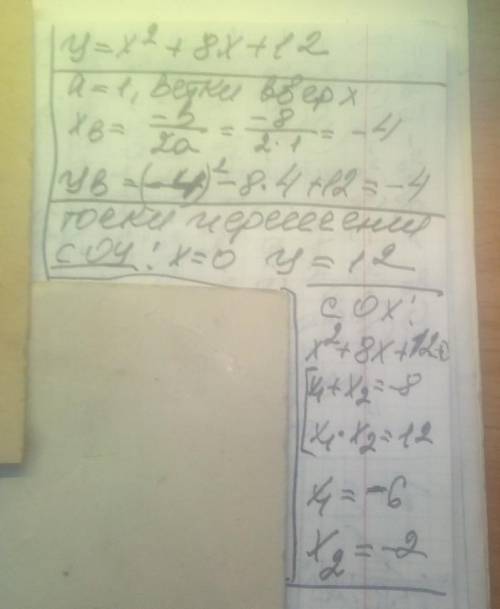 y = x² + 8x + 12
a = 1, ветки вверх
xв = -b/2a = -8/2·1 = -4
yв = (-4)² - 8·4 + 12 = -4
точки пересечения
с ОУ: x = 0 y = 12
с ОХ:
x² + 8x + 12=0
x₁ + x₂ = -8
x₁ · x₂ = 12
x₁ = -6
x₂ = -2